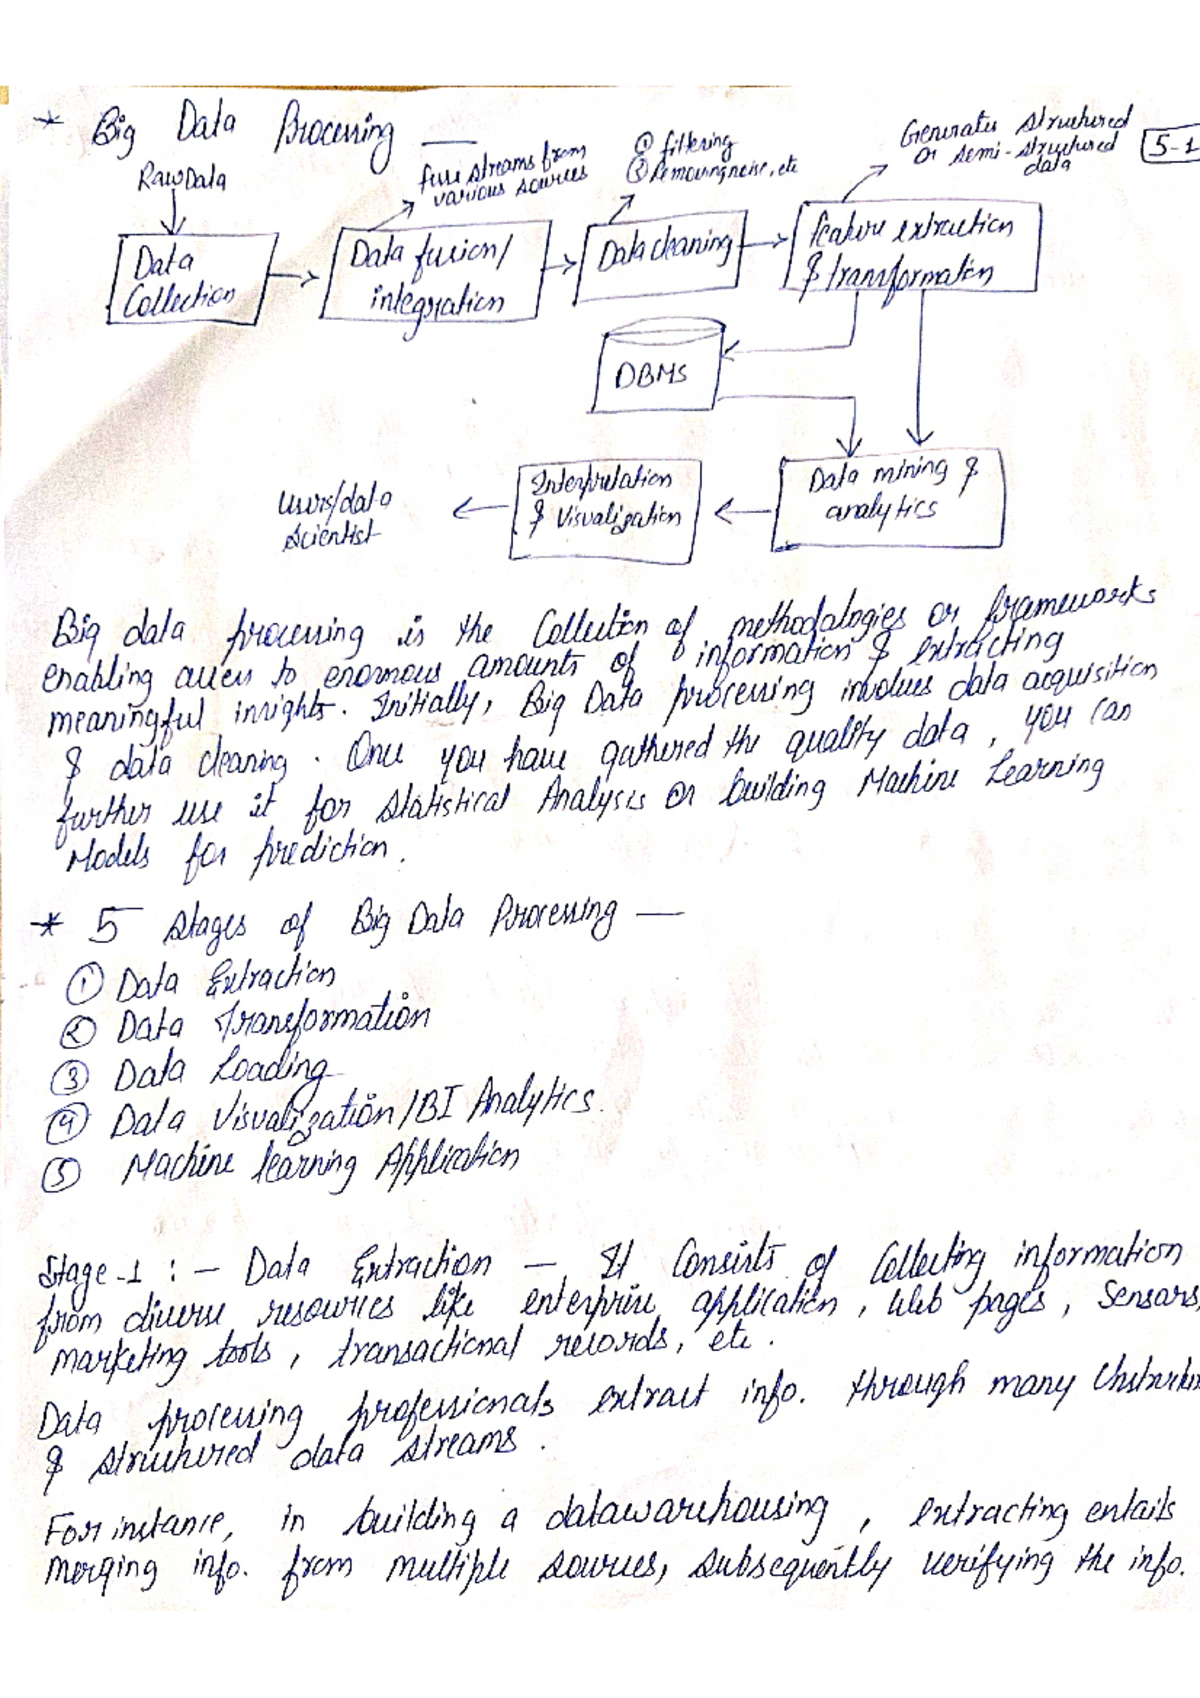 * Big Data Processing —
Raw Data
fuse streams from
various sources
① filtering
② Removing noise, etc
Generates structured
or semi-structured
data
5-1
Data
Collection
Data fusion/
integration
Data cleaning
feature extraction
& transformation
DBMS
Data mining &
analytics
Interpretation
& Visualization
Users/data
Scientist
Big data processing is the Collection of methodologies or frameworks
enabling access to enormous amounts of information & extracting
meaningful insights. Initially, Big Data processing involves data acquisition
& data cleaning. Once you have gathered the quality data, you can
further use it for Statistical Analysis or building Machine Learning
Models for prediction.
* 5 Stages of Big Data Processing —
① Data Extraction
② Data Transformation
③ Data Loading
④ Data Visualization/BI Analytics.
⑤ Machine learning Application
Stage-1 :- Data Extraction — It Consists of Collecting information
from diverse resources like enterprise application, Web pages, Sensors,
marketing tools, transactional records, etc.
Data processing professionals extract info. through many
& structured data streams.
For instance, in building a datawarehousing, extracting entails
merging info. from multiple sources, subsequently verifying the info.